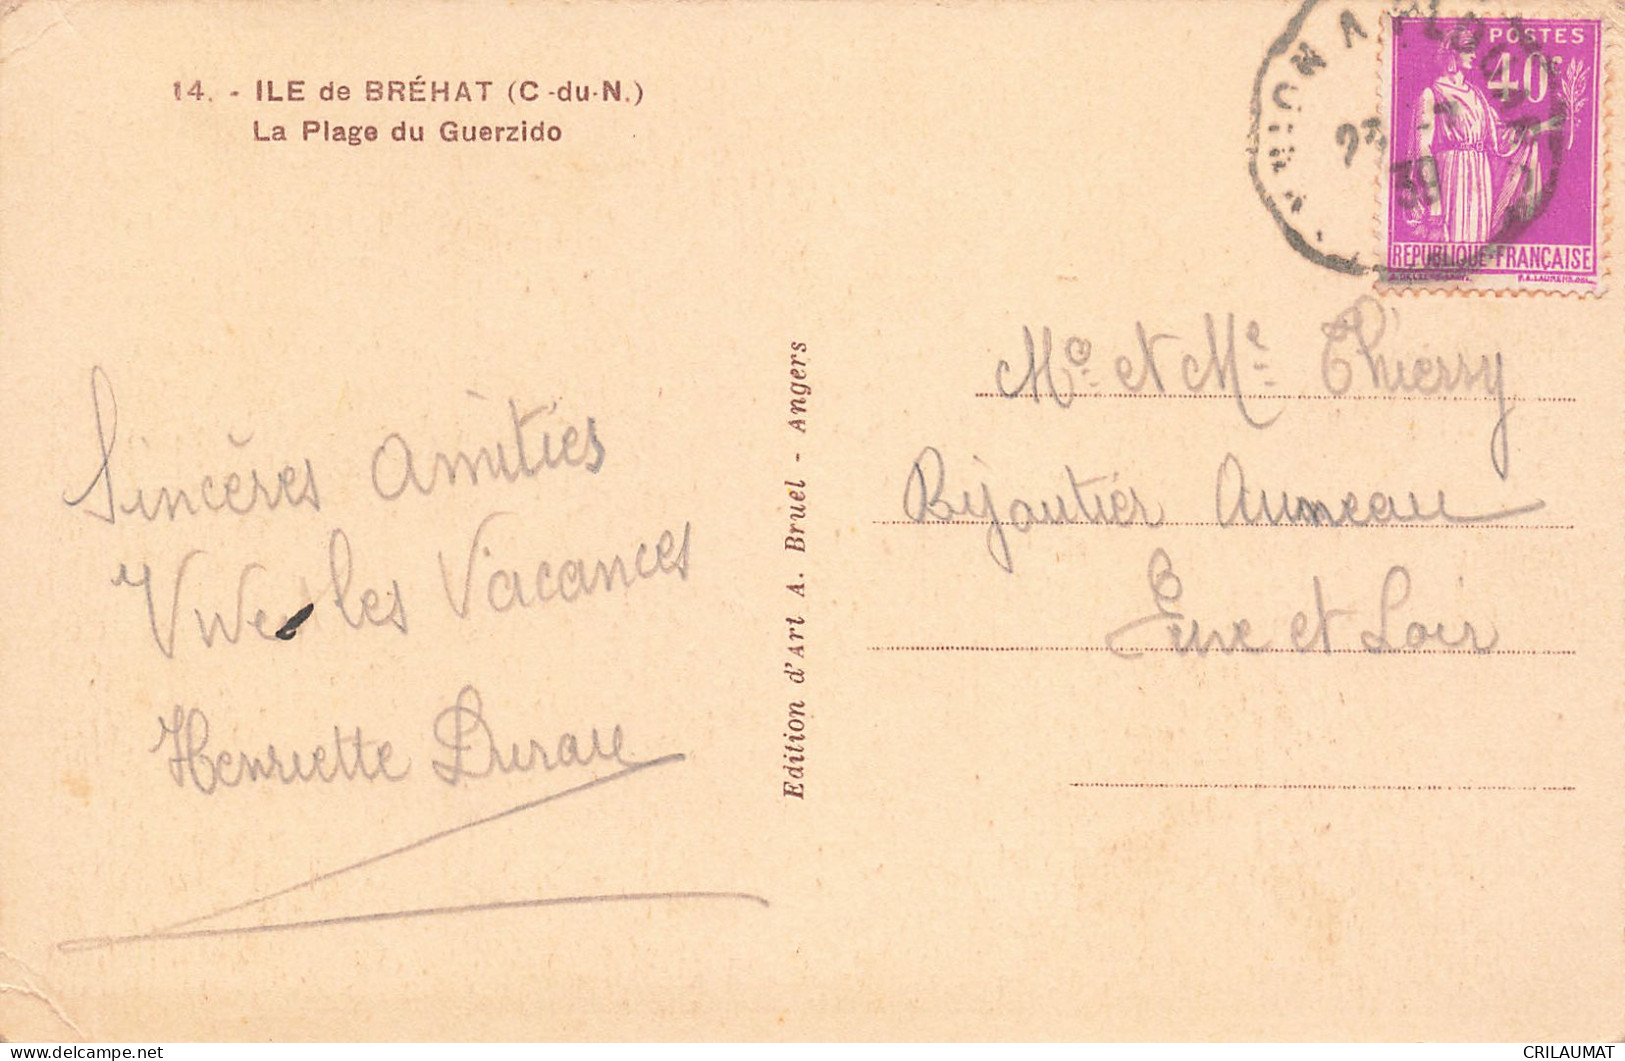 14. - ILE de BRÉHAT (C-du-N.)
La Plage du Guerzido
POSTES
40c
REPUBLIQUE-FRANÇAISE
39
Sincères amitiés
Vive les Vacances
Henriette
Mr et Me Thierry
Bijoutier Auneau
Eure et Loir
Edition d'Art A. Bruel - Angers
CRILAUMAT